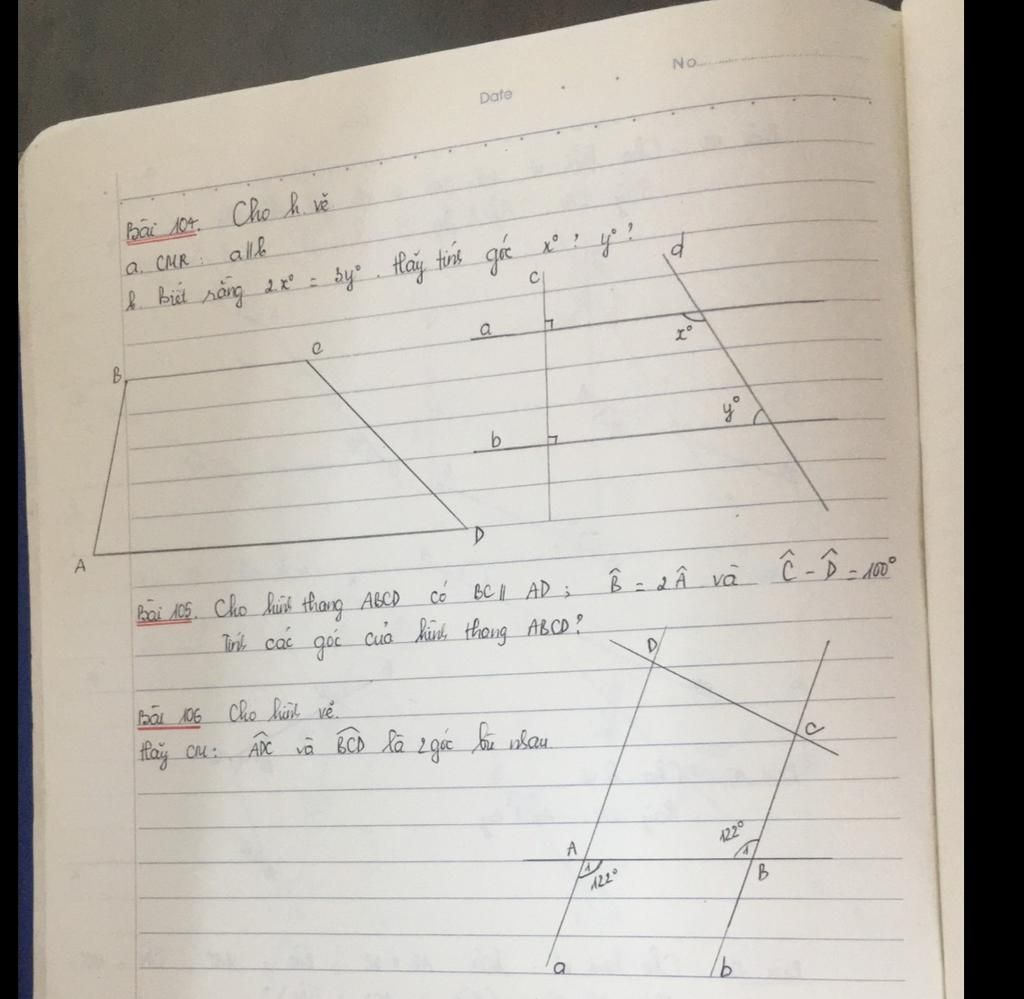 Date
No
Bài 104. Cho h. vẽ
a. CMR: a//b
b. Biết rằng 2x° = 3y°. Hãy tính góc x°? y°?
d
c
a
x°
C
B
y°
b
D
A
Bài 105. Cho hình thang ABCD có BC // AD; B̂ = 2Â và Ĉ - D̂ = 100°
Tính các góc của hình thang ABCD?
D
Bài 106 Cho hình vẽ.
C
Hãy CM: ADC và BCD là 2 góc bù nhau.
122°
A
1
1
122°
B
a
b